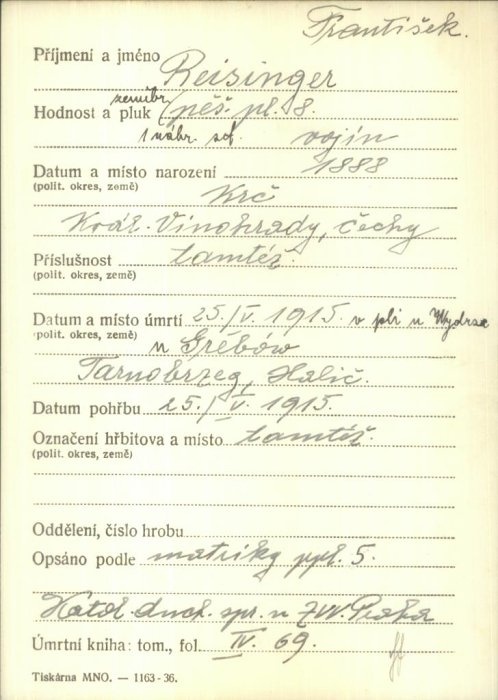 František.
Příjmení a jméno Reisinger
zeměbr.
Hodnost a pluk pěš. pl. 8.
1 náhr. vojín
Datum a místo narození 1888
(polit. okres, země)
Krč
Král. Vinohrady, Čechy
Příslušnost tamtéž.
(polit. okres, země)
Datum a místo úmrtí 25./V. 1915. v při u Wydrze
(polit. okres, země)
u Grebów
Tarnobrzeg, Halič.
Datum pohřbu 25./V. 1915.
Označení hřbitova a místo tamtéž.
(polit. okres, země)
Oddělení, číslo hrobu
Opsáno podle matriky ppl. 5.
Katol. duch. spr. u ZVV. Praha
Úmrtní kniha: tom., fol. IV. 69.
Tiskárna MNO. — 1163-36.